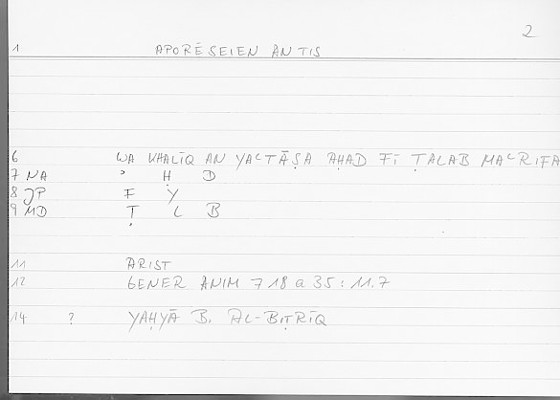 2
1 APORĒSEIEN AN TIS
6 WA KHALĪQ AN YAᶜTĀṢA AḤAD FĪ ṬALAB MAᶜRIFA
7 NA ʾ Ḥ D
8 JP F Y
9 MD Ṭ L B
11 ARIST
12 GENER ANIM 718a35: 11.7
14 ? YAḤYĀ B. AL-BIṬRĪQ